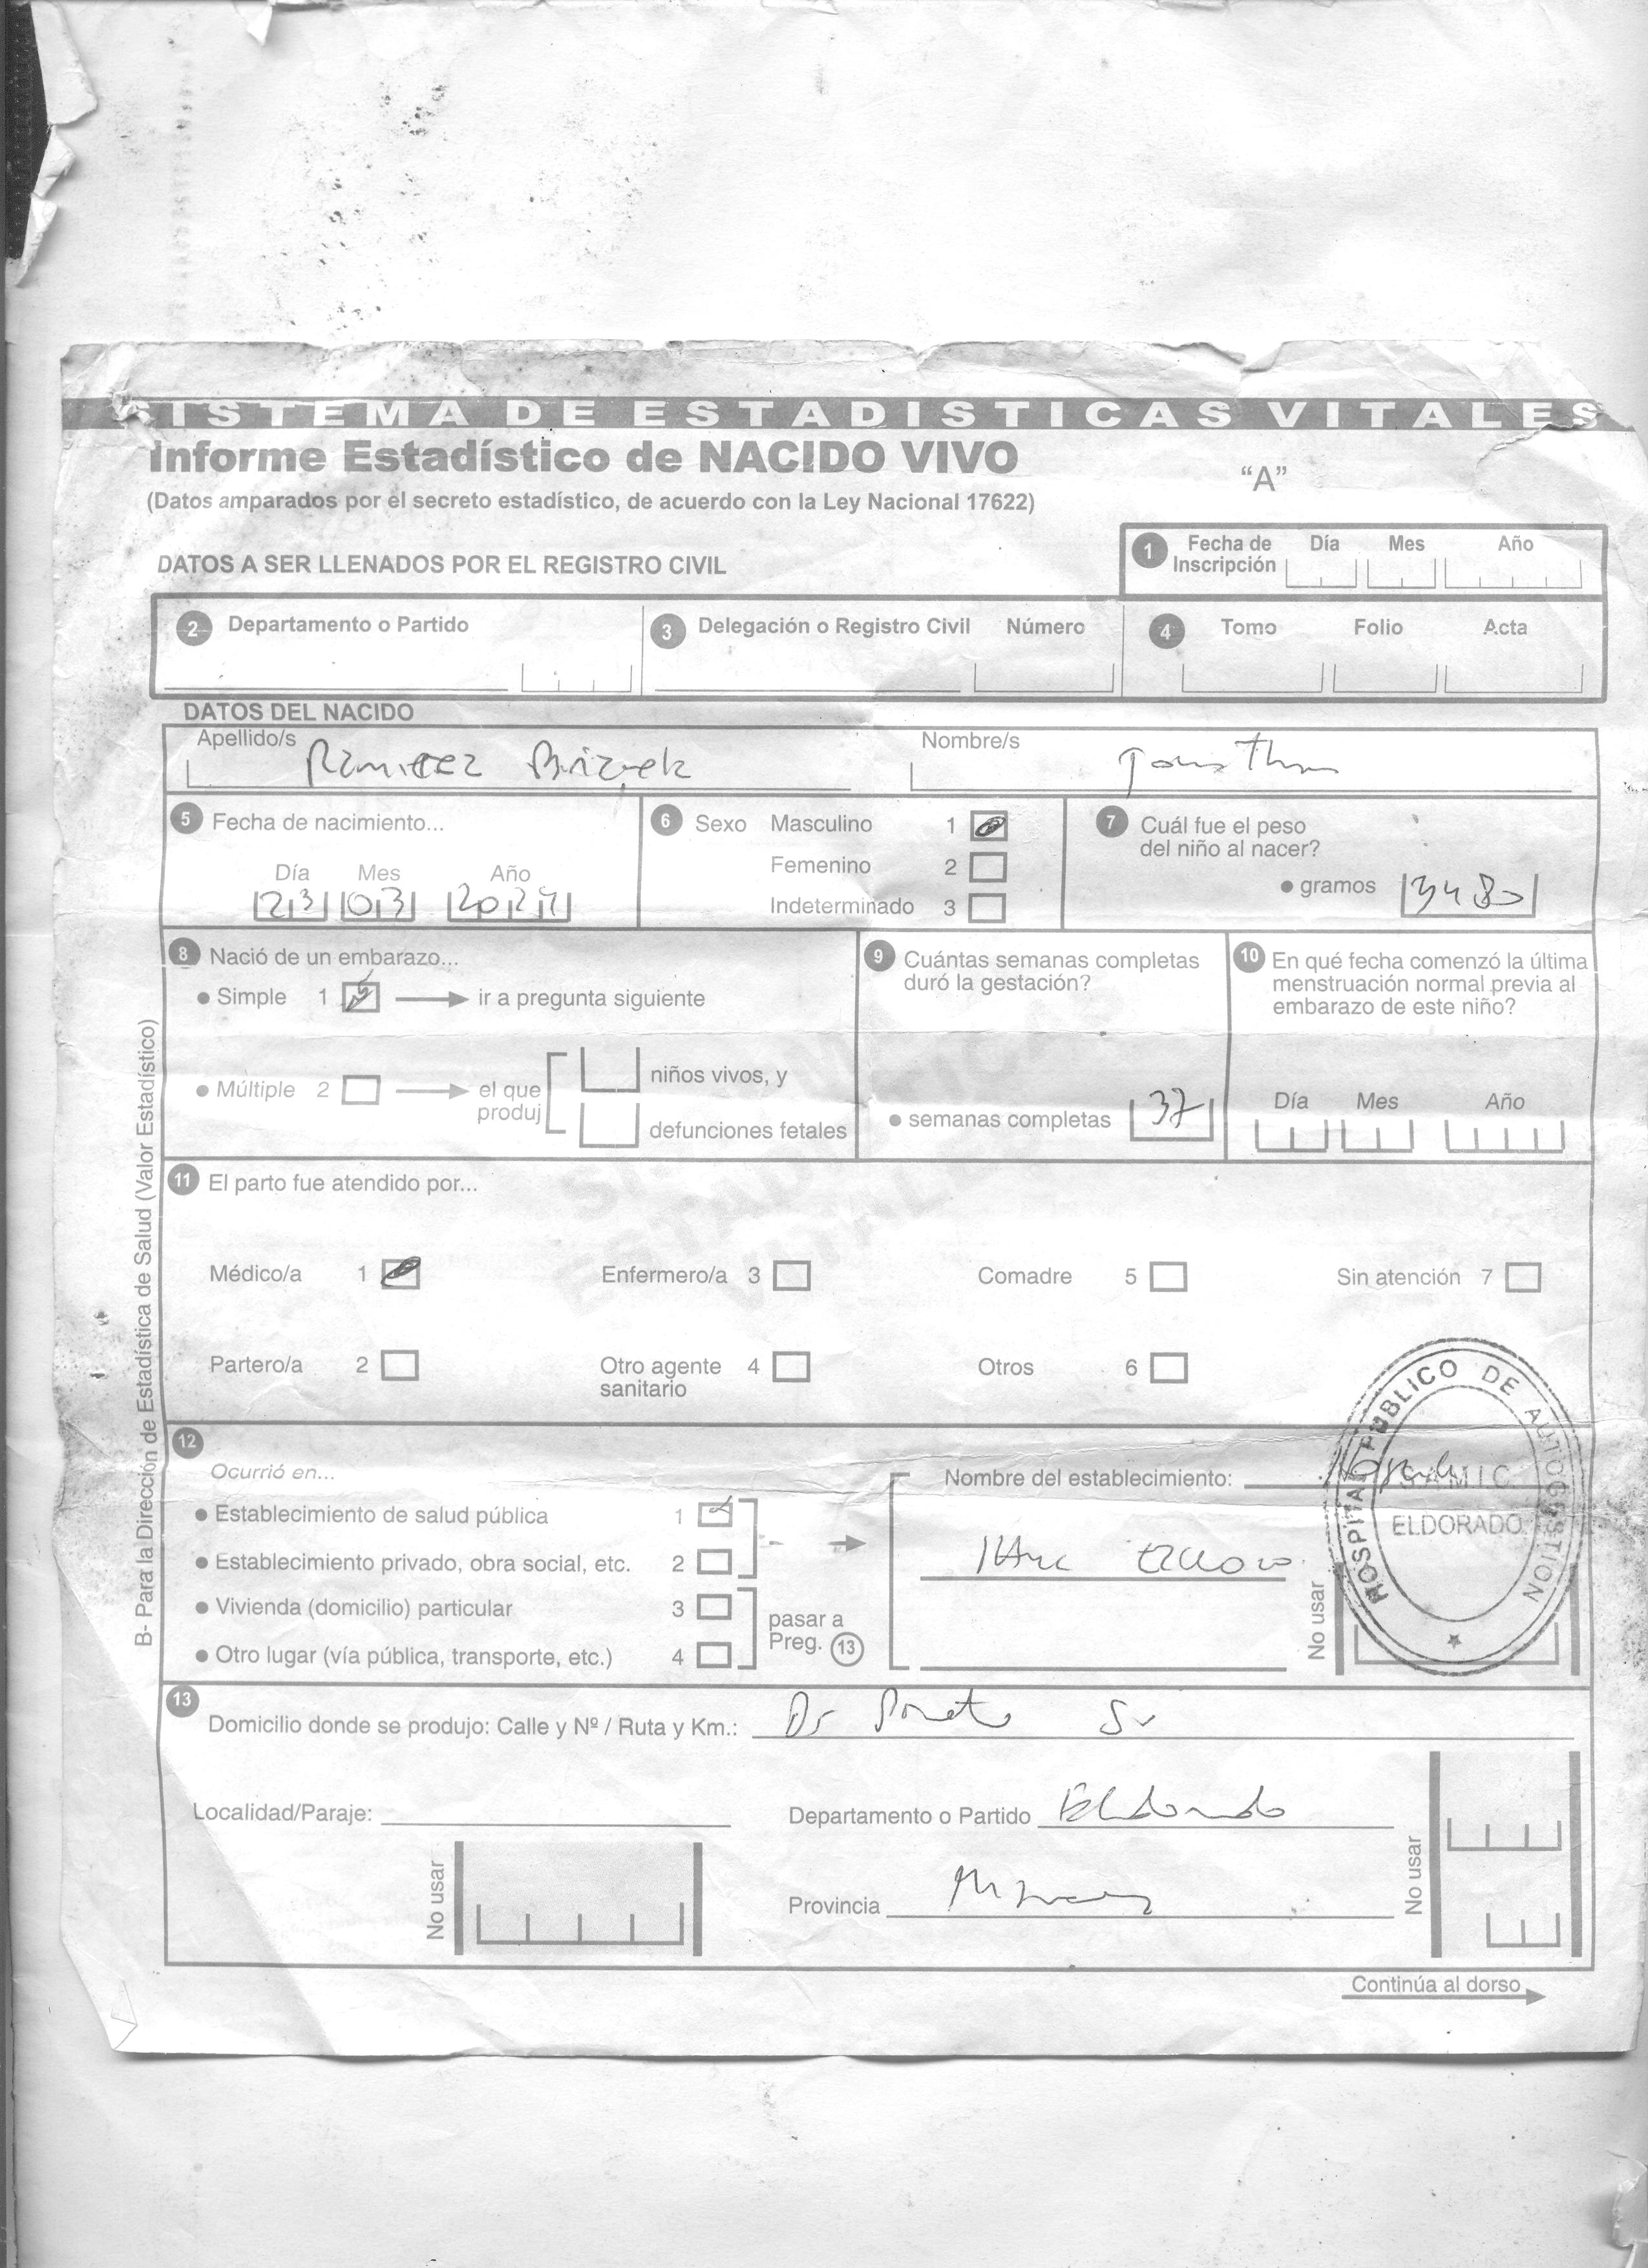 SISTEMA DE ESTADISTICAS VITALES
Informe Estadístico de NACIDO VIVO
"A"
(Datos amparados por el secreto estadístico, de acuerdo con la Ley Nacional 17622)
DATOS A SER LLENADOS POR EL REGISTRO CIVIL
1 Fecha de Inscripción Día Mes Año
2 Departamento o Partido
3 Delegación o Registro Civil Número
4 Tomo Folio Acta
DATOS DEL NACIDO
Apellido/s Ramirez
Nombre/s Jonathan
5 Fecha de nacimiento...
Día Mes Año
23 03 2024
6 Sexo Masculino 1
Femenino 2
Indeterminado 3
7 Cuál fue el peso
del niño al nacer?
• gramos 3480
8 Nació de un embarazo...
• Simple 1 ir a pregunta siguiente
• Múltiple 2 el que produj
niños vivos, y
defunciones fetales
9 Cuántas semanas completas
duró la gestación?
• semanas completas 37
10 En qué fecha comenzó la última
menstruación normal previa al
embarazo de este niño?
Día Mes Año
SISTEMA
ESTADISTICAS
VITALES
11 El parto fue atendido por...
Médico/a 1 Enfermero/a 3 Comadre 5 Sin atención 7
Partero/a 2 Otro agente sanitario 4 Otros 6
12
Ocurrió en...
• Establecimiento de salud pública 1
• Establecimiento privado, obra social, etc. 2
• Vivienda (domicilio) particular 3
• Otro lugar (vía pública, transporte, etc.) 4
pasar a
Preg. 13
Nombre del establecimiento:
No usar
HOSPITAL PUBLICO DE AUTOGESTION
SAMIC
ELDORADO
13
Domicilio donde se produjo: Calle y Nº / Ruta y Km.: Dr
Localidad/Paraje:
Departamento o Partido Eldorado
Provincia Misiones
No usar
No usar
Continúa al dorso
B- Para la Dirección de Estadística de Salud (Valor Estadístico)